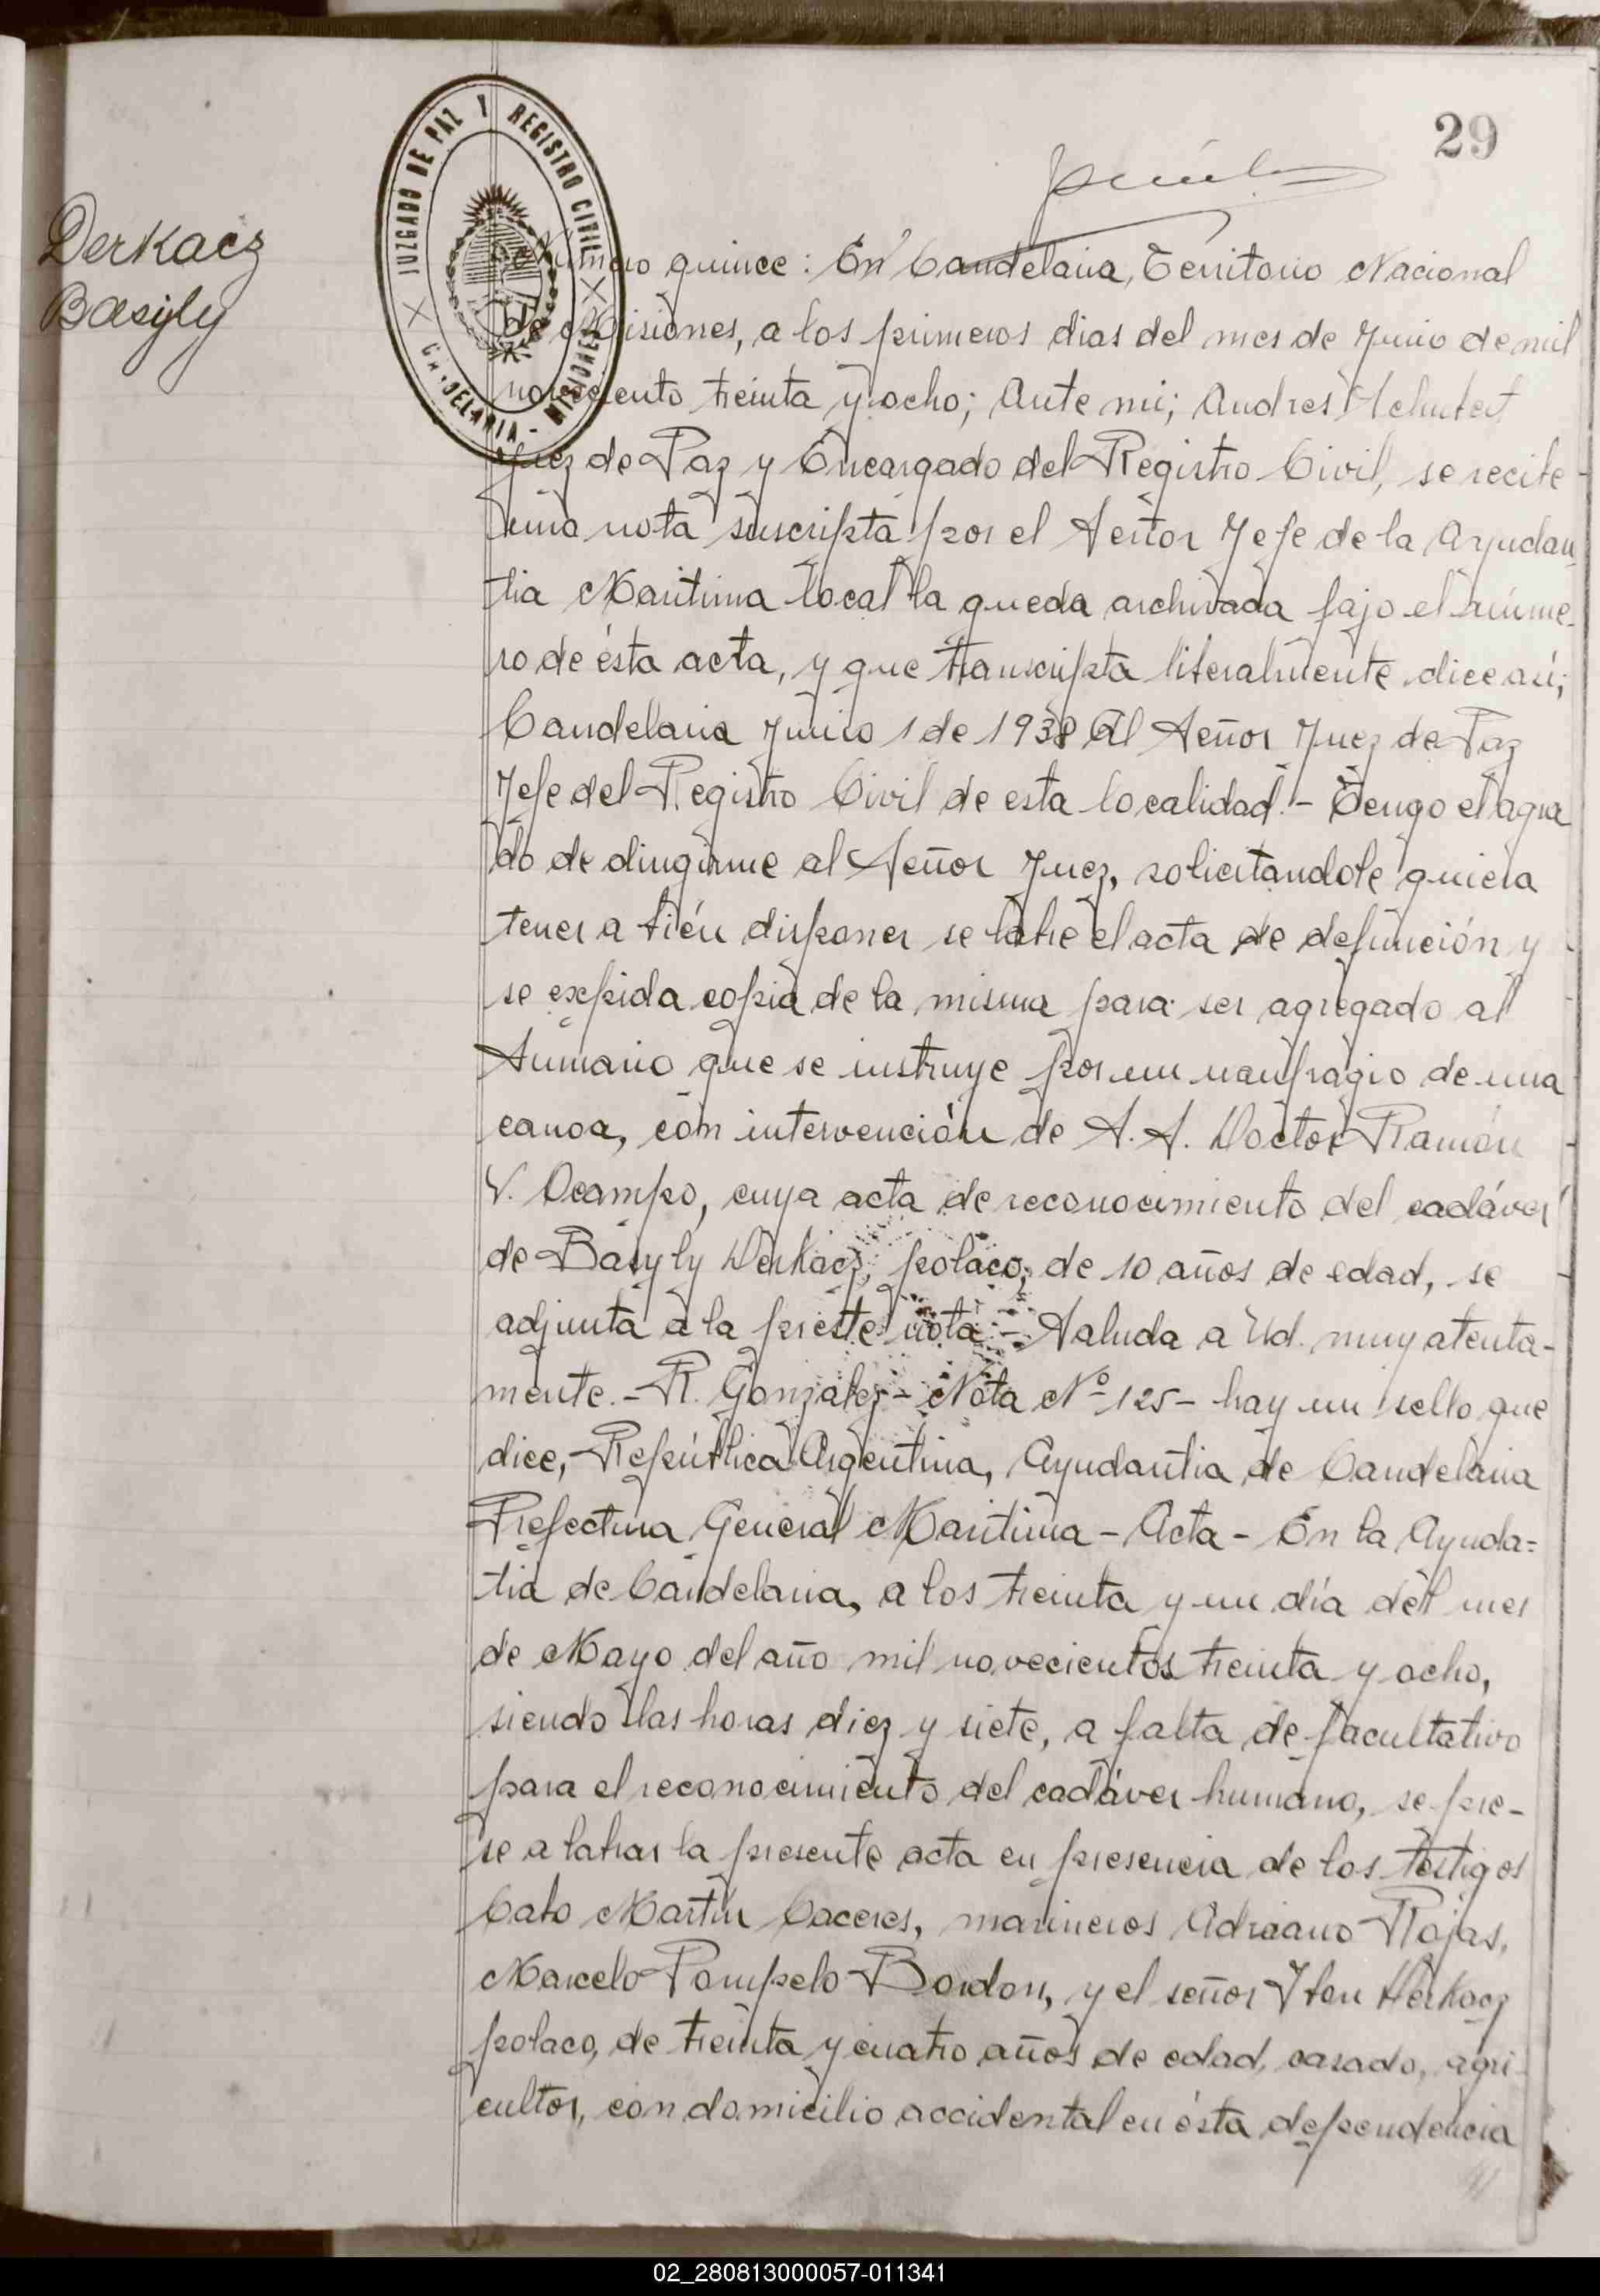 29
JUZGADO DE PAZ Y REGISTRO CIVIL
CANDELARIA - MISIONES
Derkacz
Basyly
Número quince: En Candelaria, Territorio Nacional
de Misiones, a los primeros dias del mes de Junio de mil
novecento treinta y ocho; Ante mi; Andres
Juez de Paz y Encargado del Registro Civil, se recibe
una nota suscripta por el Señor Jefe de la Ayudan
tia Maritima local la queda archivada bajo el núme-
ro de ésta acta, y que transcripta literalmente dice así;
Candelaria Junio 1 de 1938 Al Señor Juez de Paz
Jefe del Registro Civil de esta localidad.- Tengo el agra
do de dirigirme al Señor Juez, solicitandole quiera
tener a bién disponer se labre el acta de defunción y
se expida copia de la misma para ser agregado al
Sumario que se instruye por un naufragio de una
canoa, con intervención de S. S. Doctor Ramón
V. Ocampo, cuya acta de reconocimiento del cadáver
de Básyly Derkacz, polaco, de 10 años de edad, se
adjunta a la preste nota - Saluda a Ud. muy atenta-
mente.- R. Gonzalez - Nota Nº 125 - hay un sello que
dice, República Argentina, Ayudantia de Candelaria
Prefectura General Maritima - Acta - En la Ayuda=
tia de Candelaria, a los treinta y un día del mes
de Mayo del año mil novecientos treinta y ocho,
siendo las horas diez y siete, a falta de facultativo
para el reconocimiento del cadáver humano, se pre-
se a labrar la presente acta en presencia de los testigos
Cabo Martin Caceres, marineros Adriano Rojas,
Marcelo Pompelo Bordon, y el señor Iban Derkacz
polaco, de treinta y cuatro años de edad, casado, agri
cultor, con domicilio accidental en ésta dependencia
02_280813000057-011341